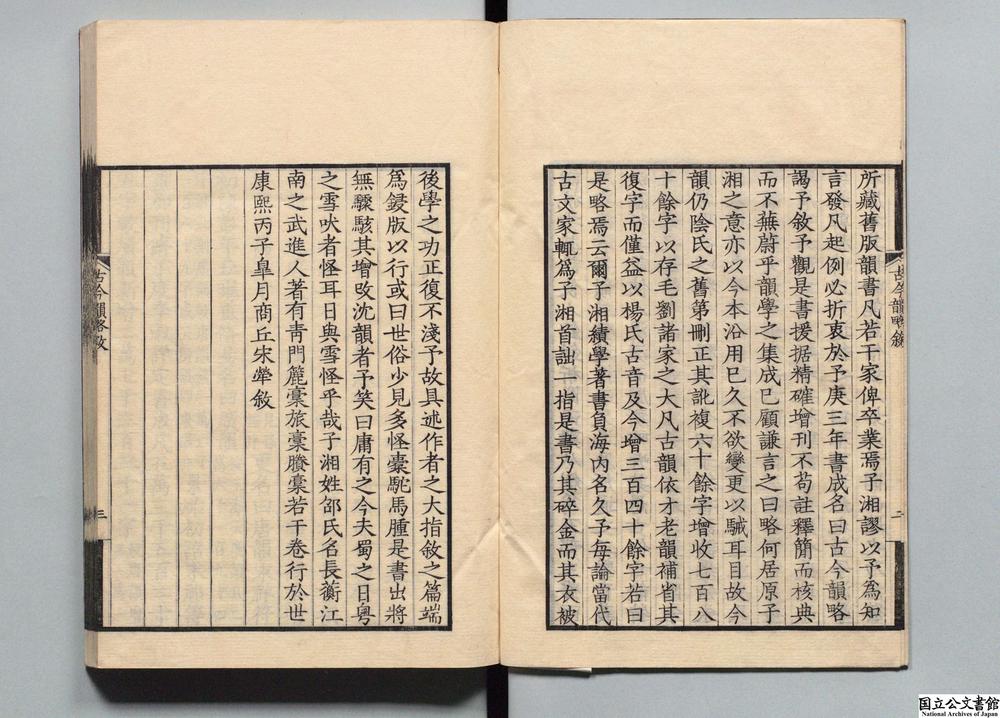 所藏舊版韻書凡若干家俾卒業焉子湘謬以予爲知
言發凡起例必折衷於予庚三年書成名曰古今韻略
謁予敘予觀是書援据精確增刊不苟註釋簡而核典
而不蕪蔚乎韻學之集成已顧謙言之曰略何居原子
湘之意亦以今本沿用已久不欲變更以駴耳目故今
韻仍陰氏之舊第刪正其訛複六十餘字增收七百八
十餘字以存毛劉諸家之大凡古韻依才老韻補省其
復字而僅益以楊氏古音及今增三百四十餘字若曰
是略焉云爾子湘績學著書負海内名久予每論當代
古文家輒爲子湘首詘一指是書乃其碎金而其衣被
古今韻略敘
二
後學之功正復不淺予故具述作者之大指敘之篇端
爲鋟版以行或曰世俗少見多怪橐駝馬腫是書出將
無驟駭其增攺沈韻者予笑曰庸有之今夫蜀之日粤
之雪吠者怪耳日與雪怪乎哉子湘姓邵氏名長蘅江
南之武進人著有靑門簏稾旅稾賸稾若干卷行於世
康熙丙子臯月商丘宋犖敘
古今韻略敘
三
国立公文書館
National Archives of Japan